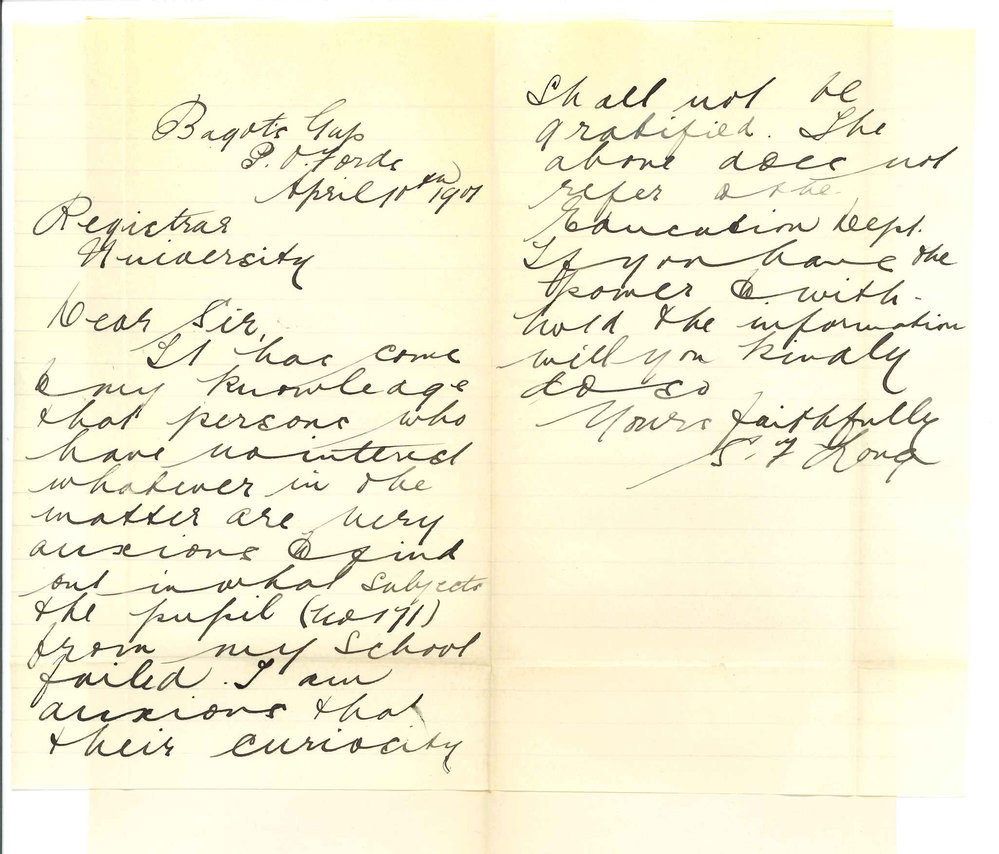 Bagot's Gap
P.O. Forde
April 10th 1901
Registrar
University
Dear Sir,
It has come
to my knowledge
that persons who
have no interest
whatever in the
matter are very
anxious to find
out in what subjects
the pupil (No 171)
from my School
failed. I am
anxious that
their curiosity
Shall not be
gratified. The
above does not
refer to the
Education Dept.
If you have the
power to with-
hold the information
will you kindly
do so
Yours faithfully
S. F Long